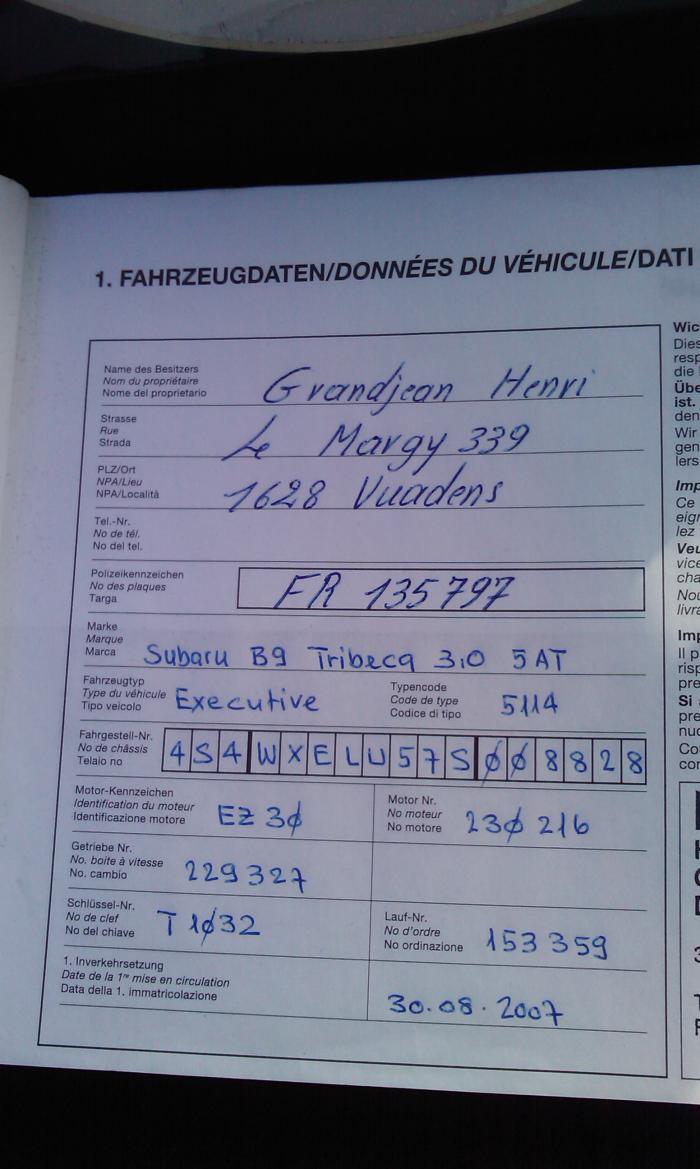 1. FAHRZEUGDATEN/DONNÉES DU VÉHICULE/DATI
Name des Besitzers
Nom du propriétaire
Nome del proprietario
Grandjean Henri
Strasse
Rue
Strada
Le Margy 339
PLZ/Ort
NPA/Lieu
NPA/Località
1628 Vuadens
Tel.-Nr.
No de tél.
No del tel.
Polizeikennzeichen
No des plaques
Targa
FR 135797
Marke
Marque
Marca
Subaru B9 Tribeca 3,0 5AT
Fahrzeugtyp
Type du véhicule
Tipo veicolo
Executive
Typencode
Code de type
Codice di tipo
5114
Fahrgestell-Nr.
No de châssis
Telaio no
4S4WXELU57S008828
Motor-Kennzeichen
Identification du moteur
Identificazione motore
EZ 30
Motor Nr.
No moteur
No motore
230216
Getriebe Nr.
No. boite à vitesse
No. cambio
229327
Schlüssel-Nr.
No de clef
No del chiave
T 1032
Lauf-Nr.
No d'ordre
No ordinazione
153359
1. Inverkehrsetzung
Date de la 1re mise en circulation
Data della 1. immatricolazione
30.08.2007
Wic
Dies
resp
die
Übe
ist.
den
Wir
gen
lers
Imp
Ce
eigr
lez
Veu
vice
cha
Nou
livra
Imp
Il p
risp
pre
Si
pre
nuc
Co
cor